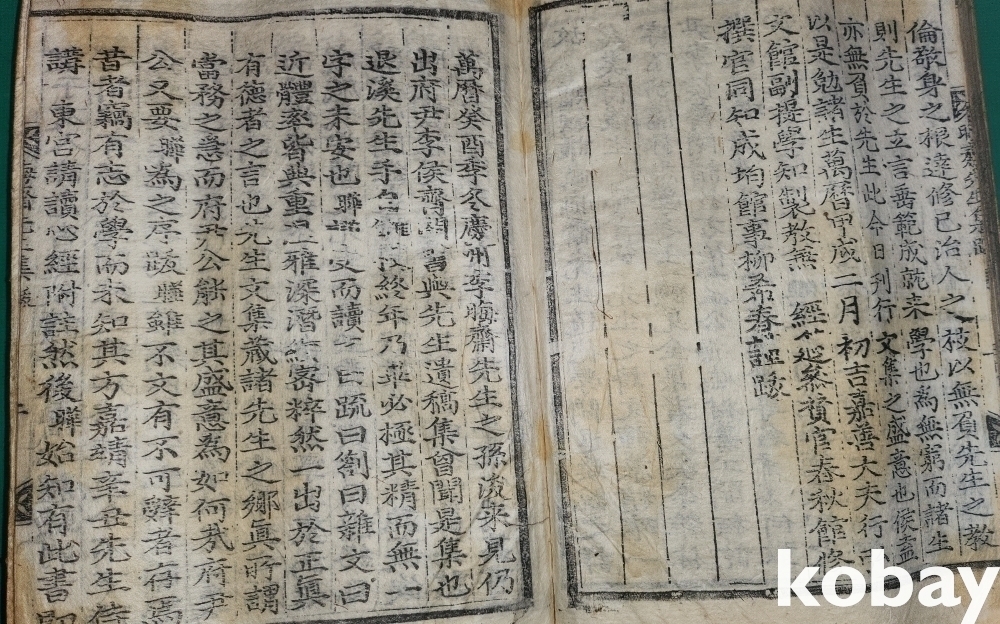 倫敬身之根達修己治人之枝以無負先生之教
則先生之立言垂範成就来學也為無窮而諸生
亦無負於先生此今日刊行文集之盛意也侯盍
以是勉諸生萬曆甲戌二月初吉嘉善大夫行
文館副提學知製教兼 經筵參贊官春秋館修
撰官同知成均館事柳希春謹跋
萬曆癸酉季冬慶州李晦齋先生之孫浚来見仍
出府尹李侯齊閔書與先生遺稿集曾聞是集也
退溪先生手自讎校終年乃畢必極其精而無一
字之未安也曄受而讀之曰疏曰箚曰雜文曰
近體率皆典重溫雅深潛縝密粹然一出於正眞
有德者之言也先生文集藏諸先生之鄉眞所謂
當務之急而府尹公能之其盛意為如何哉府尹
公又要曄為之序跋曄雖不文有不可辭者存焉
昔者竊有志於學而未知其方嘉靖辛丑先生侍
講 東宮講讀心經附註然後曄始知有此書即
kobay